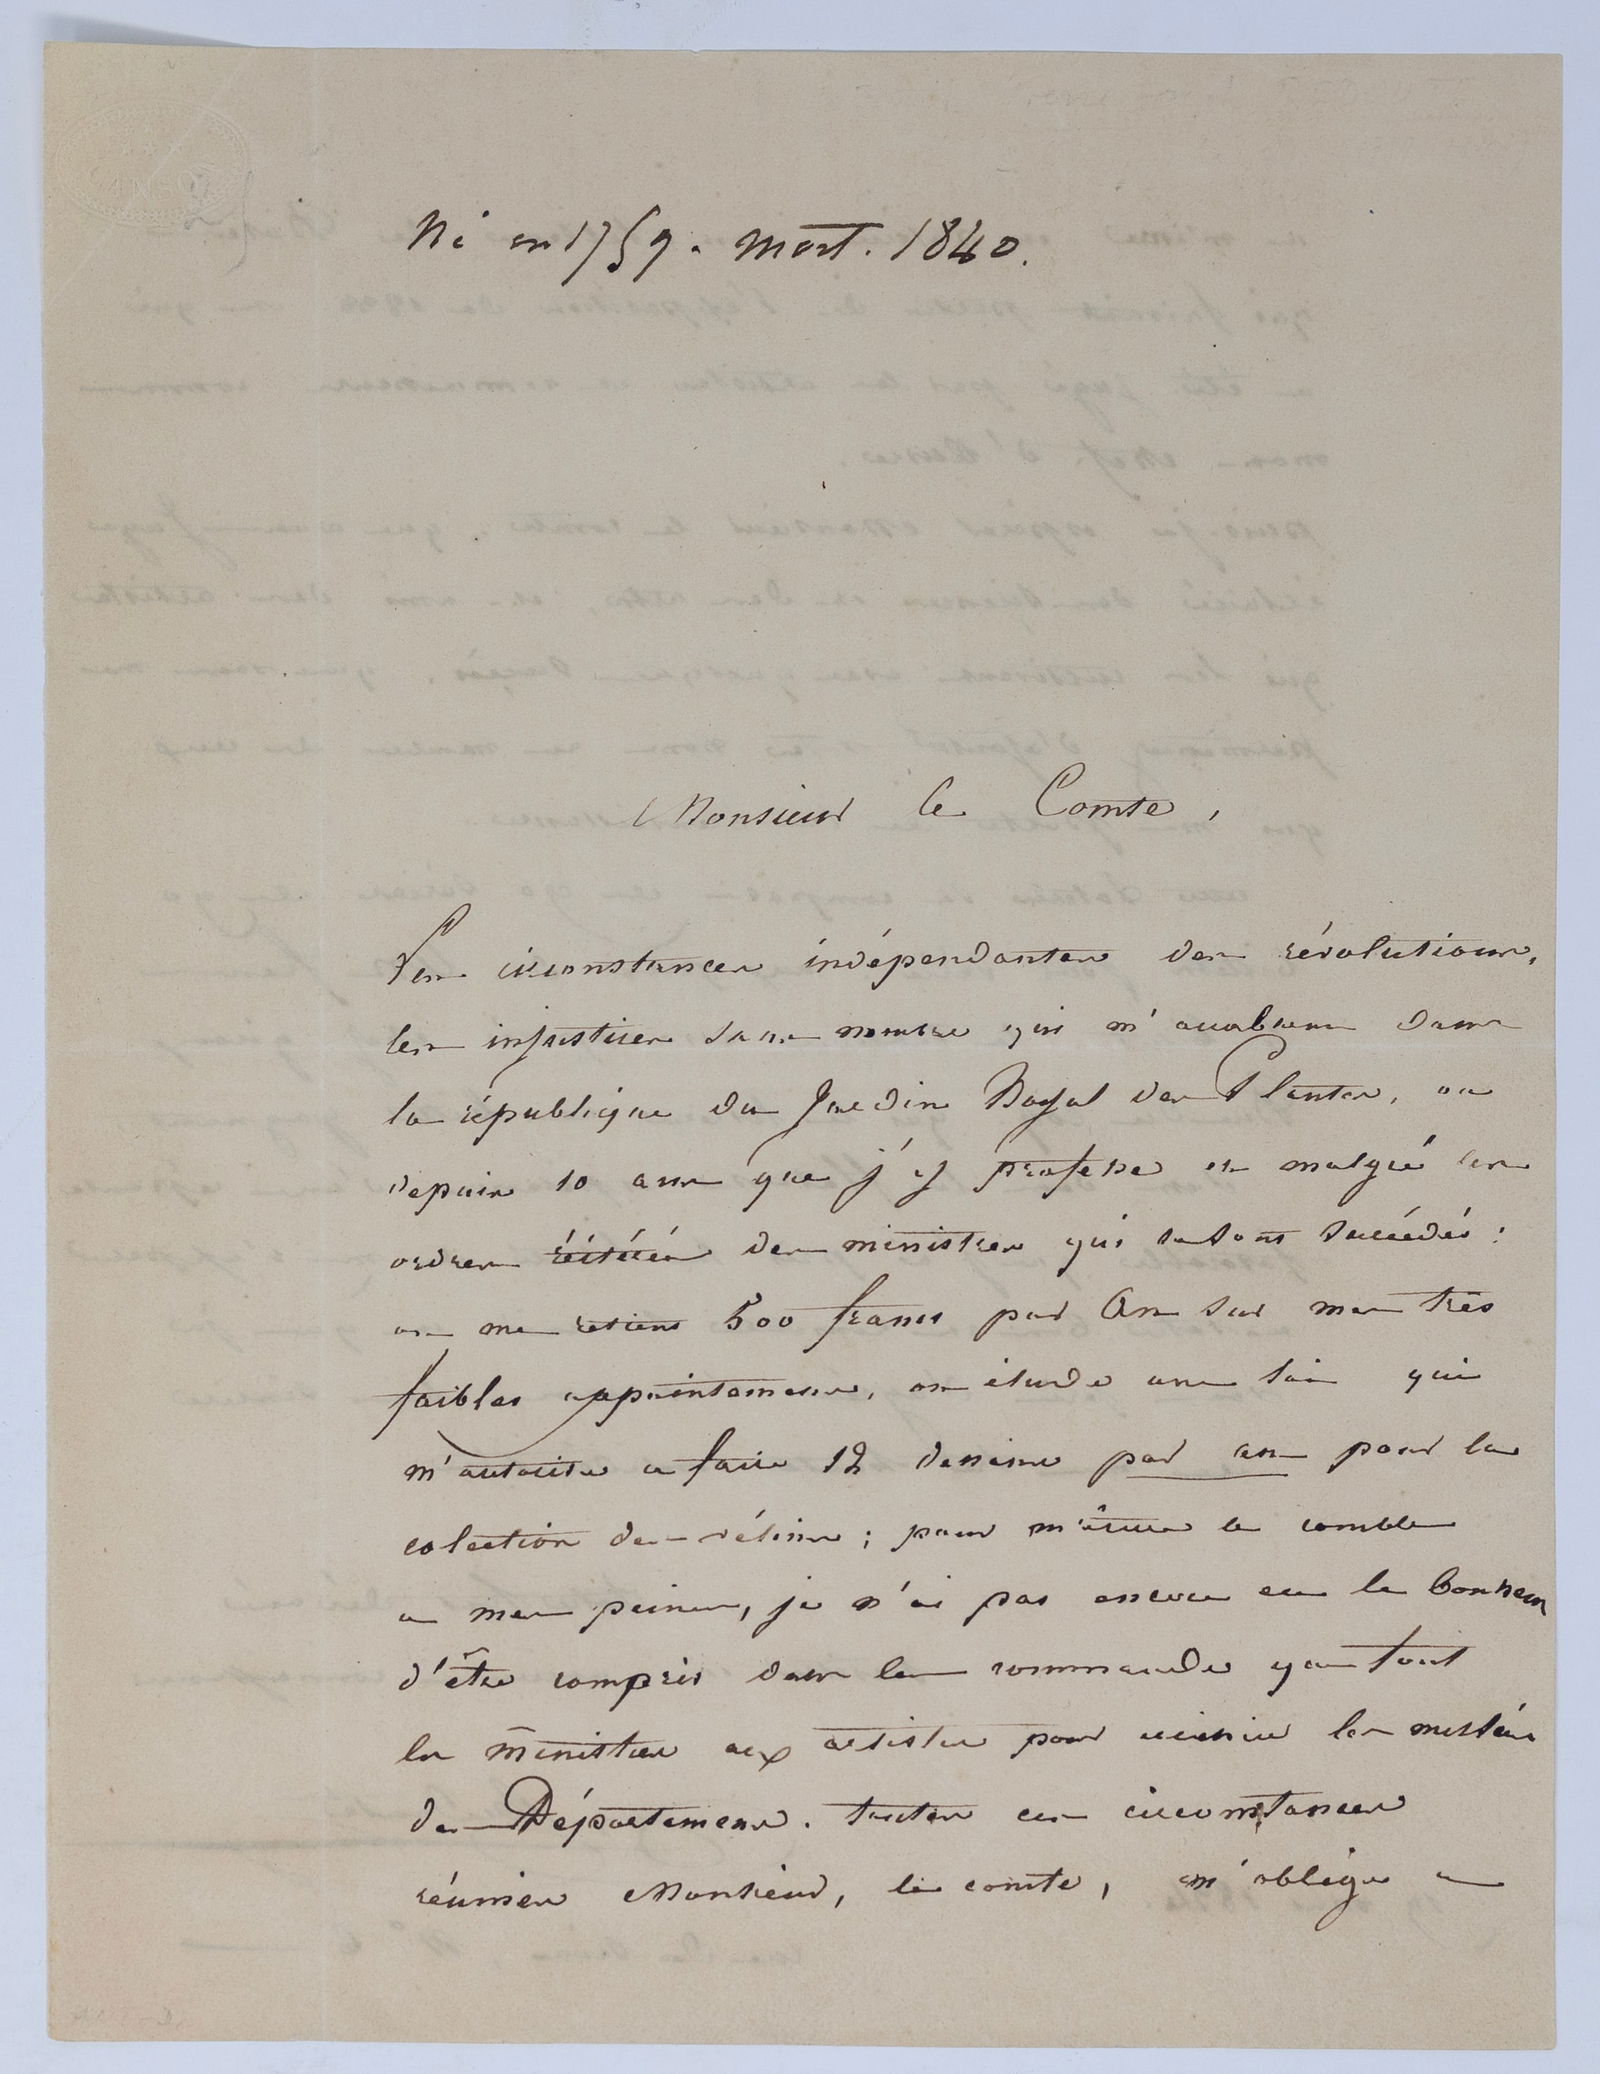 Né en 1759. mort. 1840.
Monsieur le Comte,
Les circonstances indépendantes des révolutions,
les injustices sans nombre qui m'accablent dans
la république du Jardin Royal des Plantes, ou
depuis 10 ans que j'y professe et malgré les
ordres réitérés des ministres qui se sont succédés :
on me retient 500 francs par An sur mes très
faibles appointemens, on élude une loi qui
m'autorise a faire 12 dessins par an pour la
colection des vélins ; pour mettre le comble
a mes peines, je n'ai pas encore eu le bonheur
d'être compris dans les commandes que font
les ministres aux artistes pour enrichir les musées
des Départemens. toutes ces circonstances
réunies Monsieur, le comte, m'oblige a